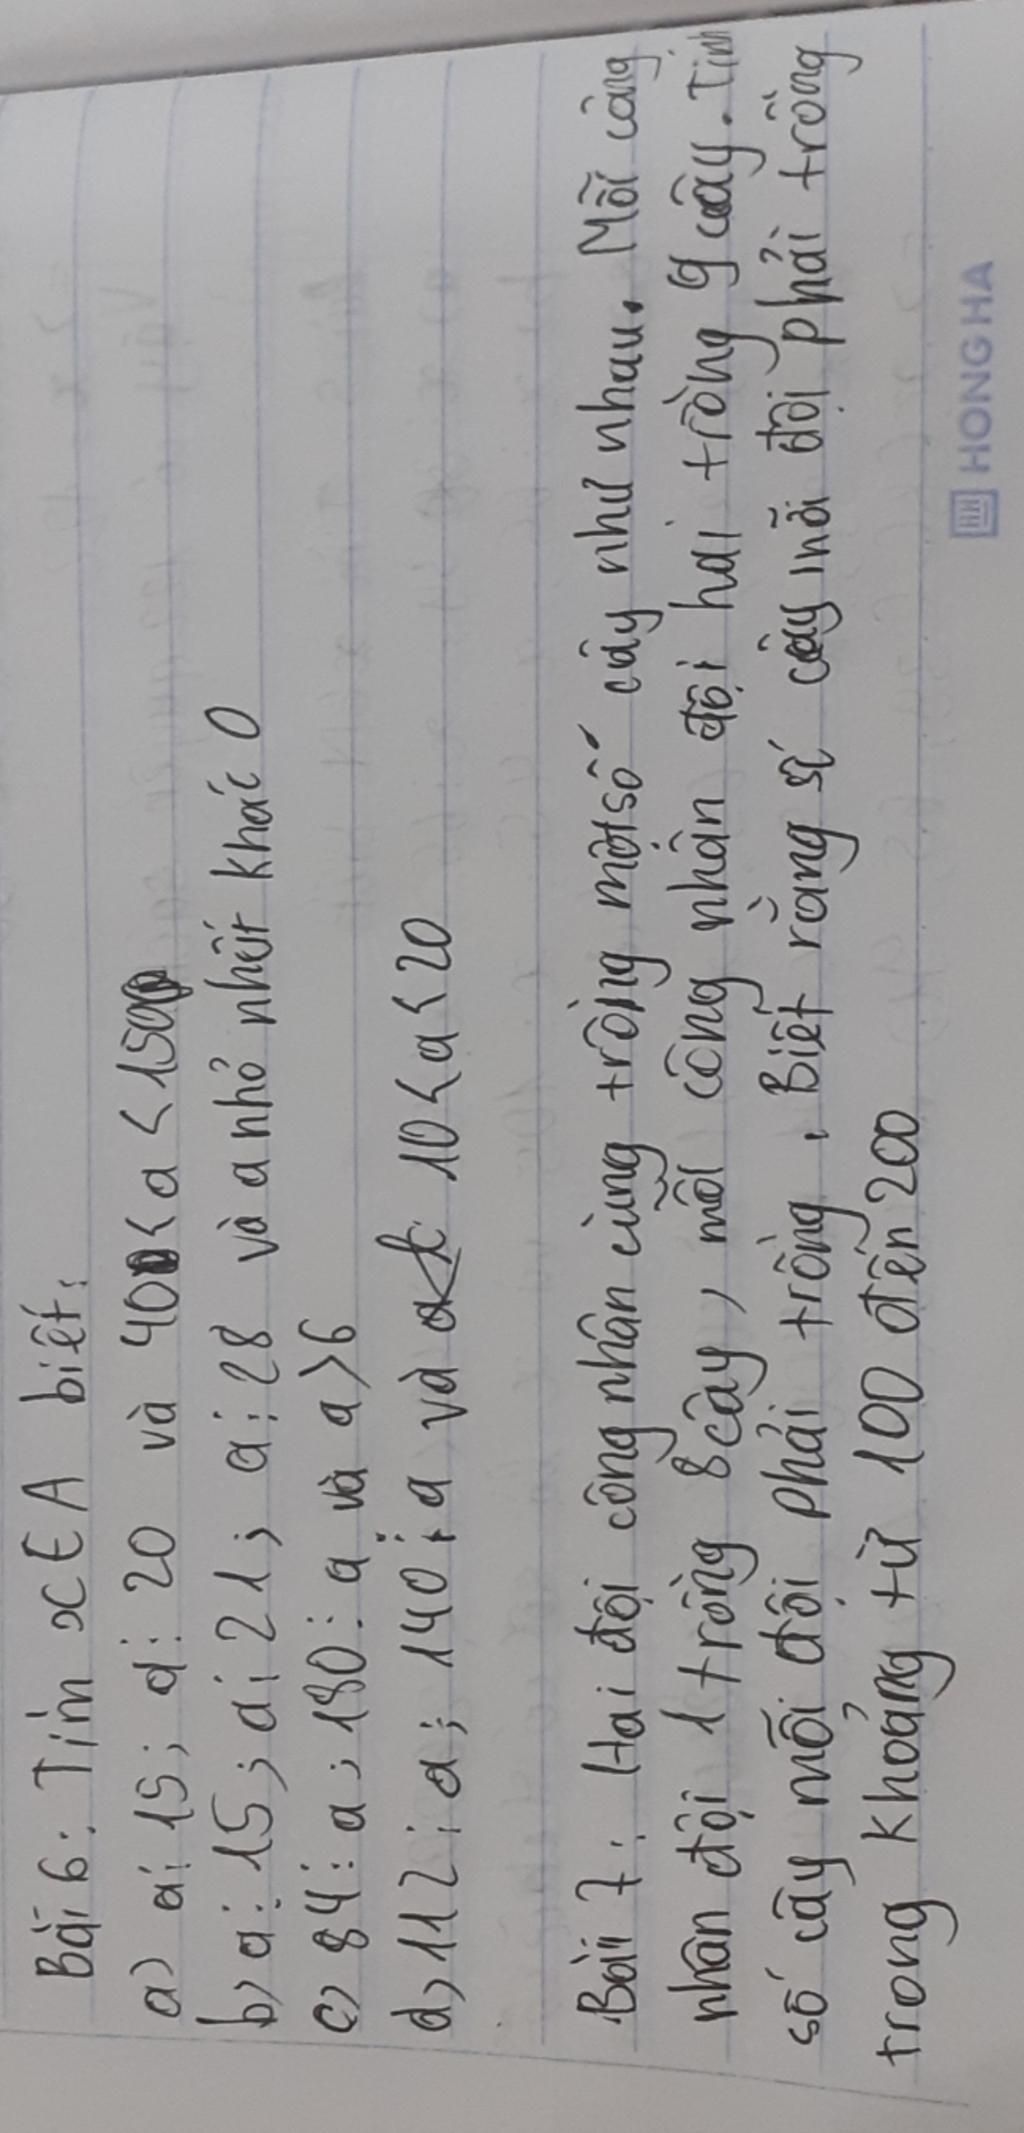 Bài 6: Tìm x ∈ A biết:
a) a ⋮ 15; a ⋮ 20 và 40 < a < 150
b) a ⋮ 15; a ⋮ 21; a ⋮ 28 và a nhỏ nhất khác 0
c) 84 ⋮ a; 180 ⋮ a và a > 6
d) 112 ⋮ a; 140 ⋮ a và 10 < a < 20
Bài 7: Hai đội công nhân cùng trồng một số cây như nhau. Mỗi công
nhân đội 1 trồng 8 cây, mỗi công nhân đội hai trồng 9 cây. Tính
số cây mỗi đội phải trồng. Biết rằng số cây mỗi đội phải trồng
trong khoảng từ 100 đến 200
HONG HA